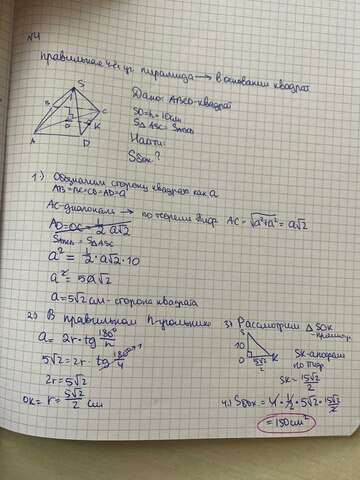 №4
правильная 4-х уг. пирамида → в основании квадрат
S
B
C
O
K
A
D
Дано: ABCD-квадрат
SO=h=10см
S△ASC = Sавсд
Найти:
Sбок?
1.) Обозначим сторону квадрата как a
AB=BC=CD=AD=a
AC-диагональ → по теореме Пиф. AC = √a²+a² = a√2
AO=OC= 1/2 a√2
Sавсд = S△ASC
a² = 1/2 · a√2 · 10
a² = 5a√2
a = 5√2 см - сторона квадрата
2.) В правильном n-угольнике
a = 2r · tg 180°/n
5√2 = 2r · tg 180°/4
2r = 5√2
OK = r = 5√2/2 см
3) Рассмотрим △SOK
S
10
O
5√2/2
K
SK-апофема
по Пиф
SK = 15√2/2
4.) Sбок = 4 · 1/2 · 5√2 · 15√2/2
= 150см²